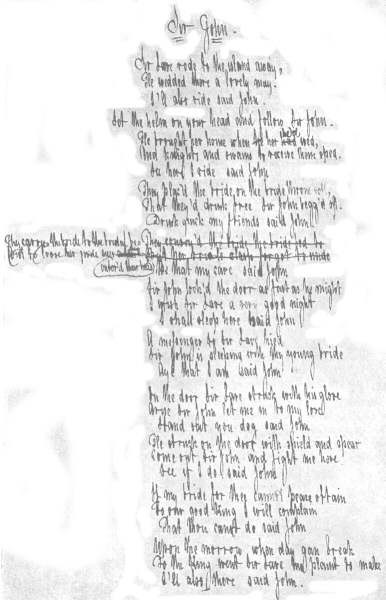 Sir John.
Sir Lave rode to the island away,
He wedded there a lovely may.
I'll also ride said John.
Set the helm on your head and follow Sir John.
He brought her home when he her had wed,
And knights and swains to receive them sped.
So here I ride said John
They plac'd the bride, on the bride throne
That they'd drink free Sir John begg'd
Drink quick my friends said John
They carry the bride to the bridal bed They the bride the bride bed to
to loose her
that my care said John
Sir John lock'd the door as fast as he might
I wish Sir Lave a very good night
I shall sleep here said John
A messenger to Sir Lave hied
Sir John is sleeping with thy young bride
Aye that I am said John
On the door Sir Lave struck with his glove
Arise Sir John let me in to my love
Stand out you dog said John
He struck on the door with shield and spear
Come out Sir John and fight me here
See if I do said John
If my bride for thee cannot peace obtain
To our good king I will complain
That thou canst do said John
Upon the morrow when day gan break
To the King went Sir Lave his plaint to make
I'll also there said John.